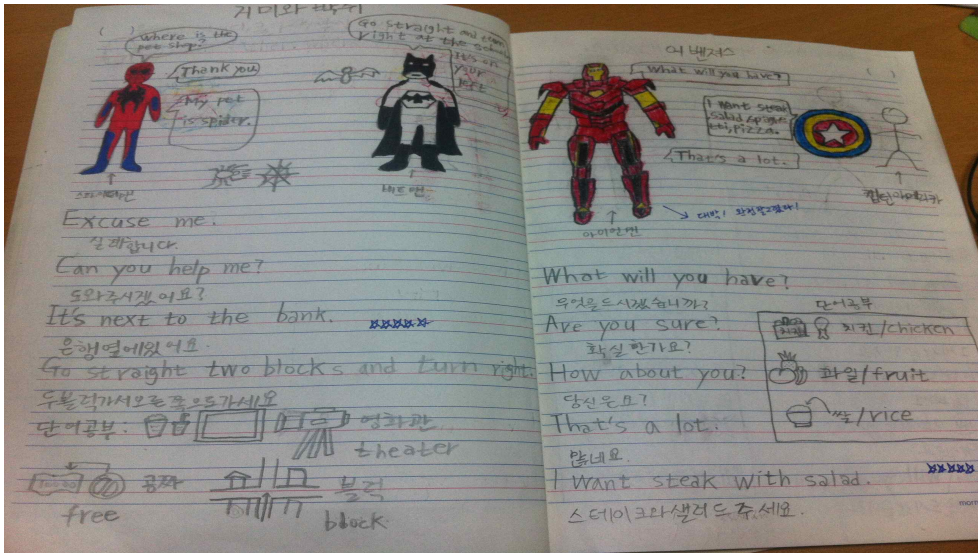 거미와 박쥐
( )
Where is the
pet shop?
Go straight and turn
right at the school
It's on
your
left
Thank you
My pet
is spider.
스파이더맨
배트맨
Excuse me.
실례합니다.
Can you help me?
도와주시겠어요?
It's next to the bank.
은행옆에있어요.
Go straight two blocks and turn right.
두블럭가서오른쪽으로가세요
단어공부:
영화관
theater
공짜
free
블럭
block
어벤저스
( )
What will you have?
I want steak
salad, spaghe
tti, pizza.
That's a lot.
아이언맨
캡틴아메리카
What will you have?
무엇을드시겠습니까?
Are you sure?
확실한가요?
How about you?
당신은요?
That's a lot.
많네요.
I want steak with salad.
스테이크와샐러드주세요.
단어공부
치킨/chicken
과일/fruit
쌀/rice